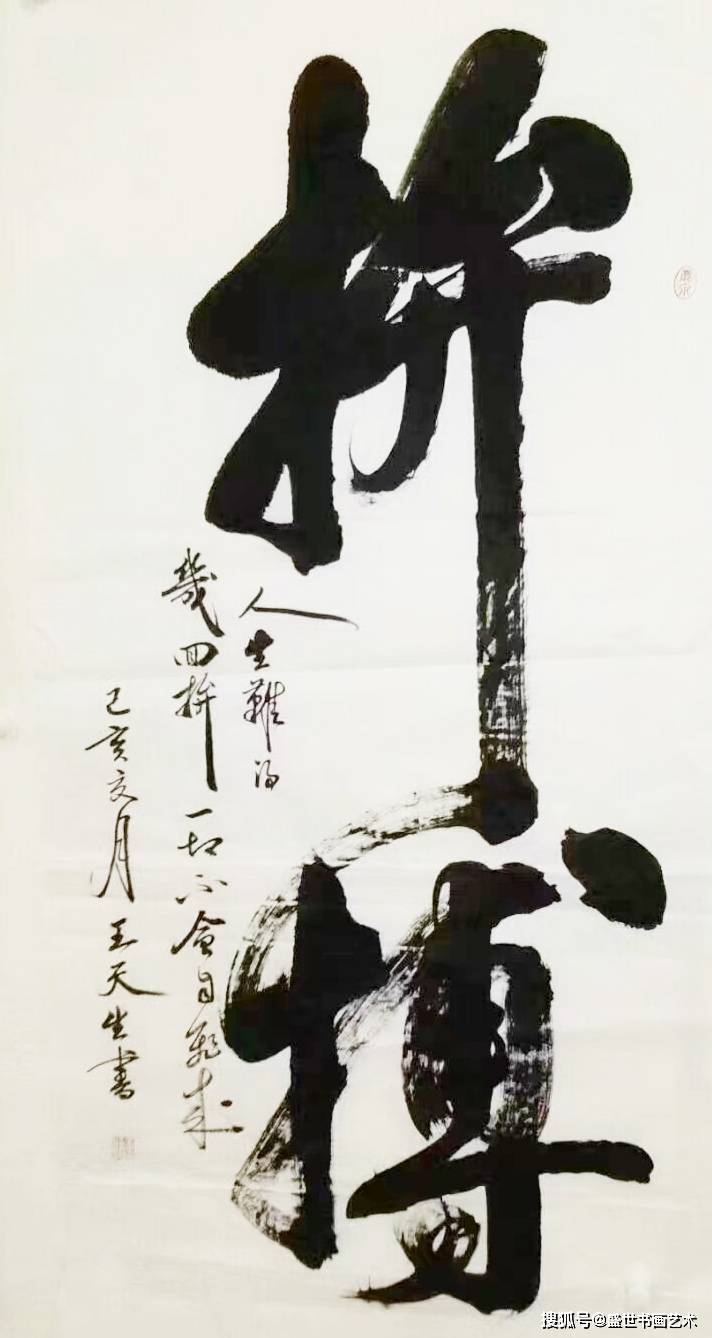 拼搏
人生難得
幾回拼一切不會自飛來
己亥月王天生書
搜狐号@盛世书画艺术